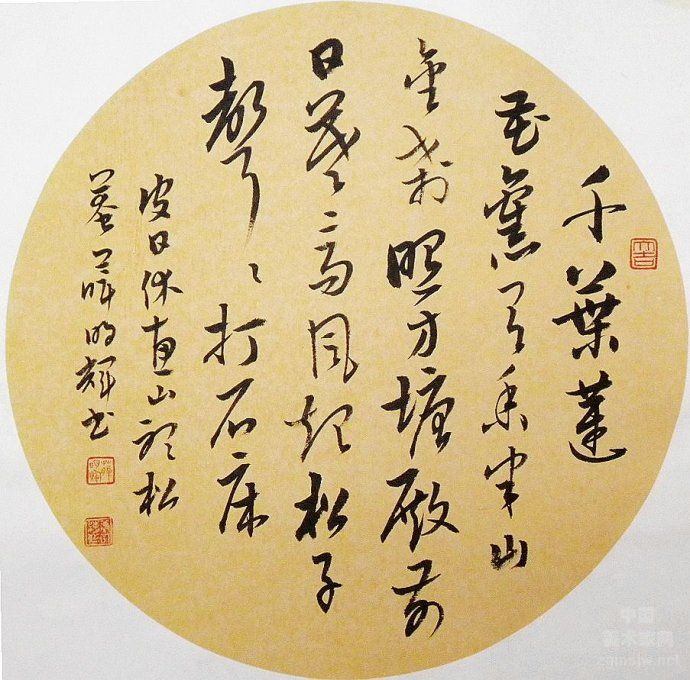 千葉蓮
花舊有香半山
金刹照方塘殿前
日暮高風起松子
聲〻打石床
皮日休惠山聽松
菴 薛明輝書
中国
美术家网